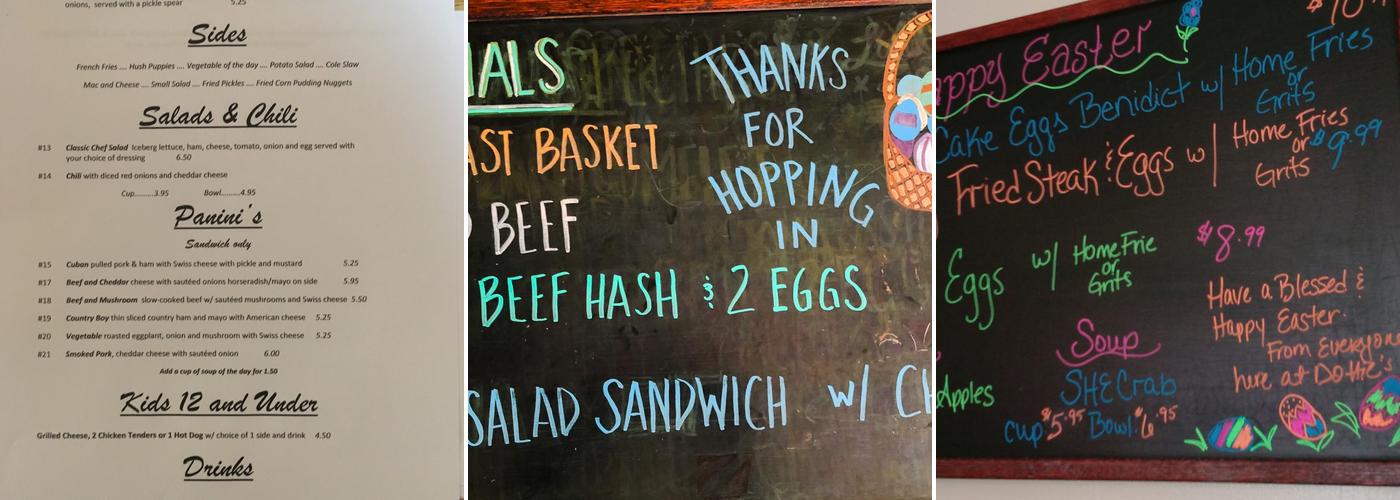 onions, served with a pickle spear 5.25
Sides
French Fries .... Hush Puppies .... Vegetable of the day .... Potato Salad .... Cole Slaw
Mac and Cheese .... Small Salad .... Fried Pickles .... Fried Corn Pudding Nuggets
Salads & Chili
#13 Classic Chef Salad Iceberg lettuce, ham, cheese, tomato, onion and egg served with
your choice of dressing 6.50
#14 Chili with diced red onions and cheddar cheese
Cup.........3.95 Bowl.........4.95
Panini's
Sandwich only
#15 Cuban pulled pork & ham with Swiss cheese with pickle and mustard 5.25
#17 Beef and Cheddar cheese with sautéed onions horseradish/mayo on side 5.95
#18 Beef and Mushroom slow-cooked beef w/ sautéed mushrooms and Swiss cheese 5.50
#19 Country Boy thin sliced country ham and mayo with American cheese 5.25
#20 Vegetable roasted eggplant, onion and mushroom with Swiss cheese 5.25
#21 Smoked Pork, cheddar cheese with sautéed onion 6.00
Add a cup of soup of the day for 1.50
Kids 12 and Under
Grilled Cheese, 2 Chicken Tenders or 1 Hot Dog w/ choice of 1 side and drink 4.50
Drinks
IALS
AST BASKET
BEEF
BEEF HASH & 2 EGGS
SALAD SANDWICH w/ CH
THANKS
FOR
HOPPING
IN
appy Easter
Cake Eggs Benidict w/ Home Fries
or
Grits
Fried Steak & Eggs w/ Home Fries
or
Grits
$9.99
Eggs w/ Home Frie
or
Grits
$8.99
Apples
Soup
SHE Crab
Cup $5.95 Bowl $6.95
Have a Blessed &
Happy Easter.
From Everyone
here at Dottie's